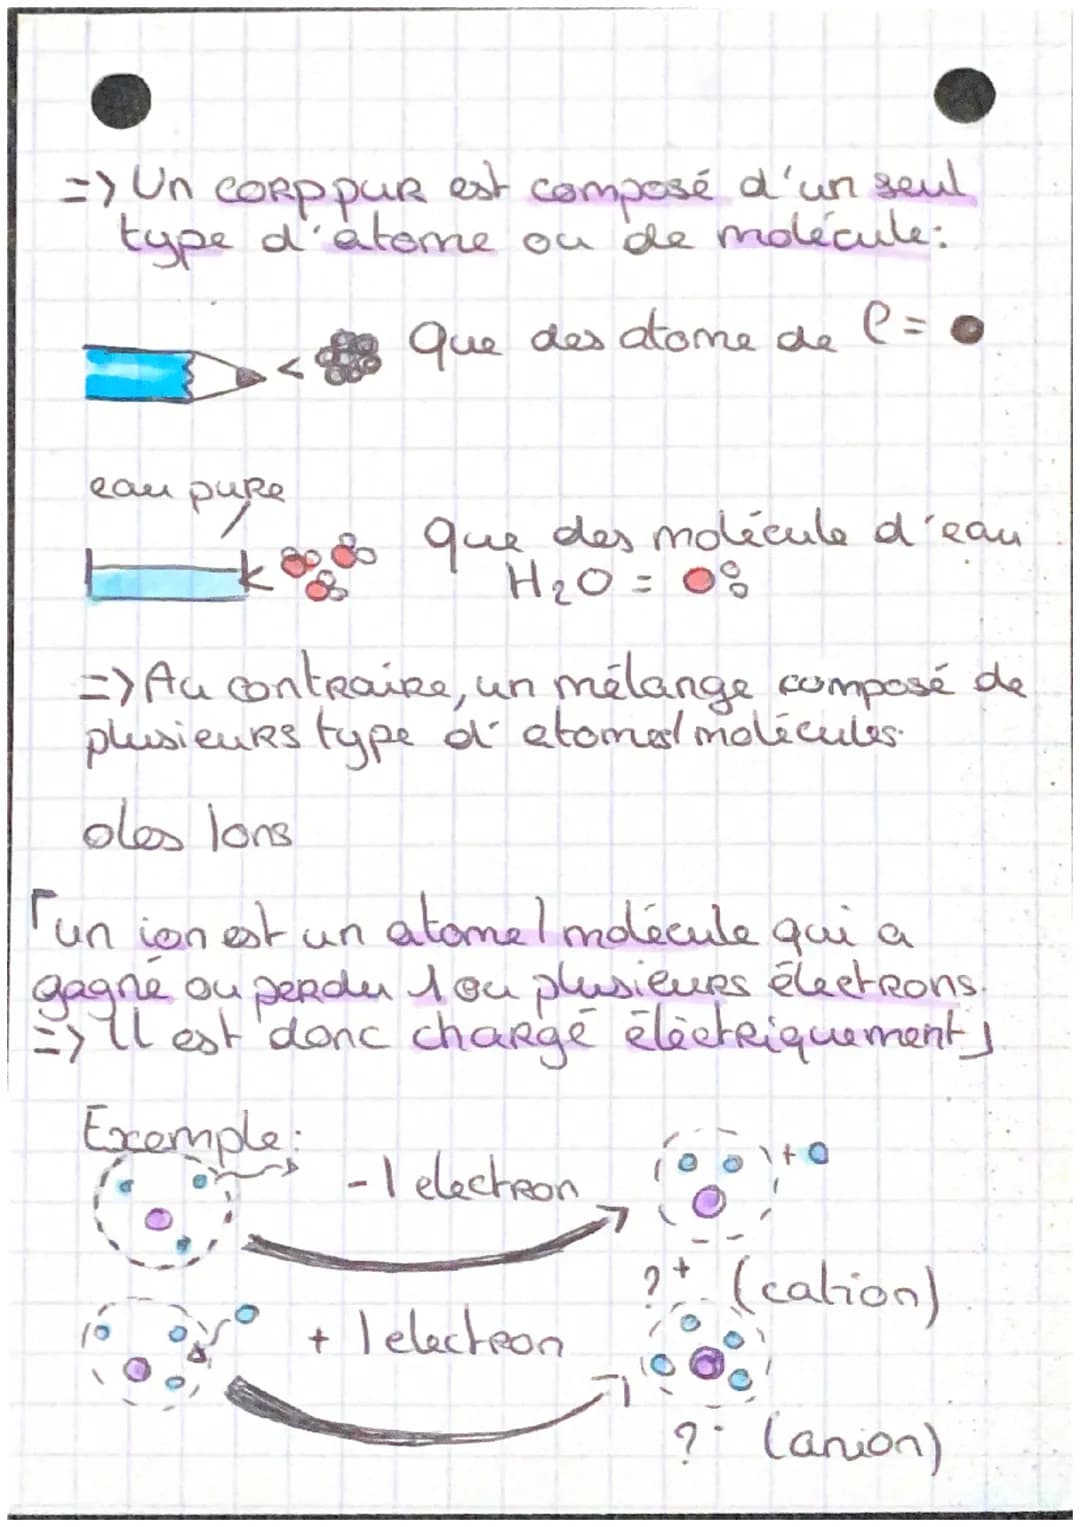 => Un corp pur est composé d'un seul
type d'atome ou de molécule:
Que des atome de C =
eau pure
que des molécule d'eau
H₂O =
=> Au contraire, un mélange composé de
plusieurs type d'atomes/molécules.
des Ions
"un ion est un atome/molécule qui a
gagné ou perdu 1 ou plusieurs électrons.
=> Il est donc chargé électriquement"
Exemple:
-1 electron
+
?+ (cation)
+ 1 electron
?- (anion)